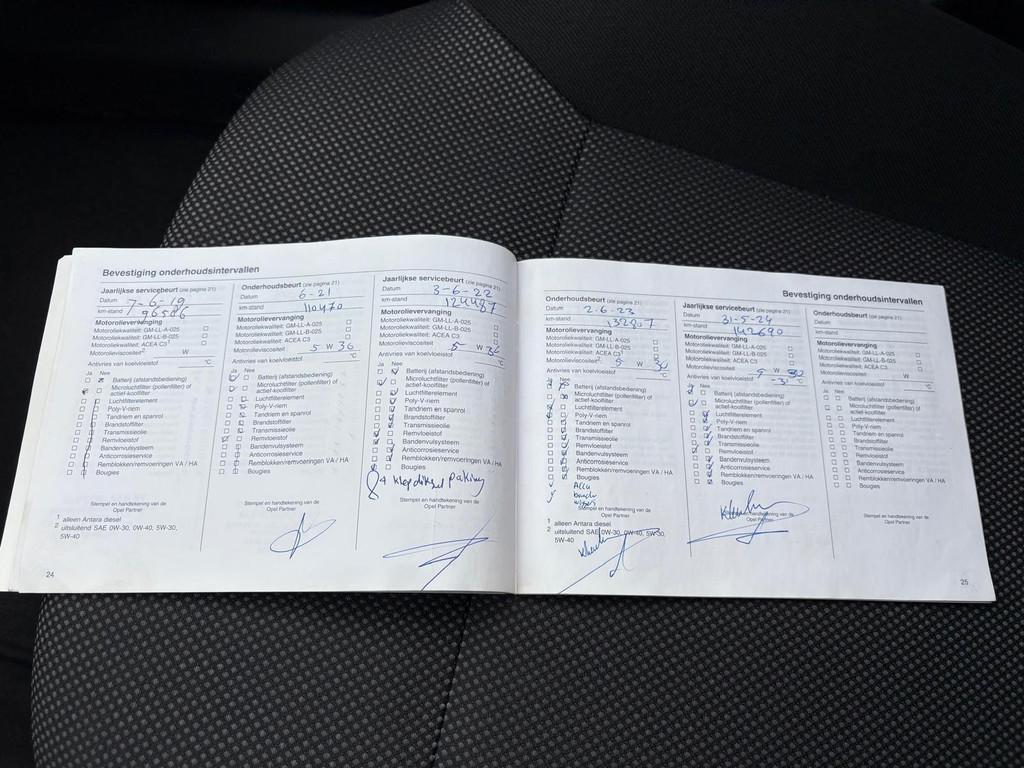 Bevestiging onderhoudsintervallen
Jaarlijkse servicebeurt (zie pagina 21)
Datum 7-6-19
km-stand 96586
Motorolievervanging
Motoroliekwaliteit: GM-LL-A-025
Motoroliekwaliteit: GM-LL-B-025
Motoroliekwaliteit: ACEA C3¹
Motorolieviscositeit² W
Antivries van koelvloeistof °C
Ja Nee
Batterij (afstandsbediening)
Microluchtfilter (pollenfilter) of
actief-koolfilter
Luchtfilterelement
Poly-V-riem
Tandriem en spanrol
Brandstoffilter
Transmissieolie
Remvloeistof
Bandenvulsysteem
Anticorrosieservice
Remblokken/remvoeringen VA / HA
Bougies
Stempel en handtekening van de
Opel Partner
1 alleen Antara diesel
2 uitsluitend SAE 0W-30, 0W-40, 5W-30,
5W-40
24
Onderhoudsbeurt (zie pagina 21)
Datum 6-21
km-stand 110470
Motorolievervanging
Motoroliekwaliteit: GM-LL-A-025
Motoroliekwaliteit: GM-LL-B-025
Motoroliekwaliteit: ACEA C3
Motorolieviscositeit 5 W 30
Antivries van koelvloeistof °C
Ja Nee
Batterij (afstandsbediening)
Microluchtfilter (pollenfilter) of
actief-koolfilter
Luchtfilterelement
Poly-V-riem
Tandriem en spanrol
Brandstoffilter
Transmissieolie
Remvloeistof
Bandenvulsysteem
Anticorrosieservice
Remblokken/remvoeringen VA / HA
Bougies
Stempel en handtekening van de
Opel Partner
Jaarlijkse servicebeurt (zie pagina 21)
Datum 3-6-22
km-stand 124487
Motorolievervanging
Motoroliekwaliteit: GM-LL-A-025
Motoroliekwaliteit: GM-LL-B-025
Motoroliekwaliteit: ACEA C3
Motorolieviscositeit 5 W 30
Antivries van koelvloeistof °C
Ja Nee
Batterij (afstandsbediening)
Microluchtfilter (pollenfilter) of
actief-koolfilter
Luchtfilterelement
Poly-V-riem
Tandriem en spanrol
Brandstoffilter
Transmissieolie
Remvloeistof
Bandenvulsysteem
Anticorrosieservice
Remblokken/remvoeringen VA / HA
Bougies
klepdeksel pakking
Stempel en handtekening van de
Opel Partner
Bevestiging onderhoudsintervallen
Onderhoudsbeurt (zie pagina 21)
Datum 2-6-23
km-stand 132907
Motorolievervanging
Motoroliekwaliteit: GM-LL-A-025
Motoroliekwaliteit: GM-LL-B-025
Motoroliekwaliteit: ACEA C3¹
Motorolieviscositeit² 5 W 30
Antivries van koelvloeistof °C
Ja Nee
Batterij (afstandsbediening)
Microluchtfilter (pollenfilter) of
actief-koolfilter
Luchtfilterelement
Poly-V-riem
Tandriem en spanrol
Brandstoffilter
Transmissieolie
Remvloeistof
Bandenvulsysteem
Anticorrosieservice
Remblokken/remvoeringen VA / HA
Bougies
Accu
Stempel en handtekening van de
Opel Partner
1 alleen Antara diesel
2 uitsluitend SAE 0W-30, 0W-40, 5W-30,
5W-40
Jaarlijkse servicebeurt (zie pagina 21)
Datum 31-5-24
km-stand 142690
Motorolievervanging
Motoroliekwaliteit: GM-LL-A-025
Motoroliekwaliteit: GM-LL-B-025
Motoroliekwaliteit: ACEA C3
Motorolieviscositeit 5 W 30
Antivries van koelvloeistof °C
Ja Nee
Batterij (afstandsbediening)
Microluchtfilter (pollenfilter) of
actief-koolfilter
Luchtfilterelement
Poly-V-riem
Tandriem en spanrol
Brandstoffilter
Transmissieolie
Remvloeistof
Bandenvulsysteem
Anticorrosieservice
Remblokken/remvoeringen VA / HA
Bougies
handtekening van de
Opel Partner
Onderhoudsbeurt (zie pagina 21)
Datum
km-stand
Motorolievervanging
Motoroliekwaliteit: GM-LL-A-025
Motoroliekwaliteit: GM-LL-B-025
Motoroliekwaliteit: ACEA C3
Motorolieviscositeit W
Antivries van koelvloeistof °C
Ja Nee
Batterij (afstandsbediening)
Microluchtfilter (pollenfilter) of
actief-koolfilter
Luchtfilterelement
Poly-V-riem
Tandriem en spanrol
Brandstoffilter
Transmissieolie
Remvloeistof
Bandenvulsysteem
Anticorrosieservice
Remblokken/remvoeringen VA / HA
Bougies
Stempel en handtekening van de
Opel Partner
25